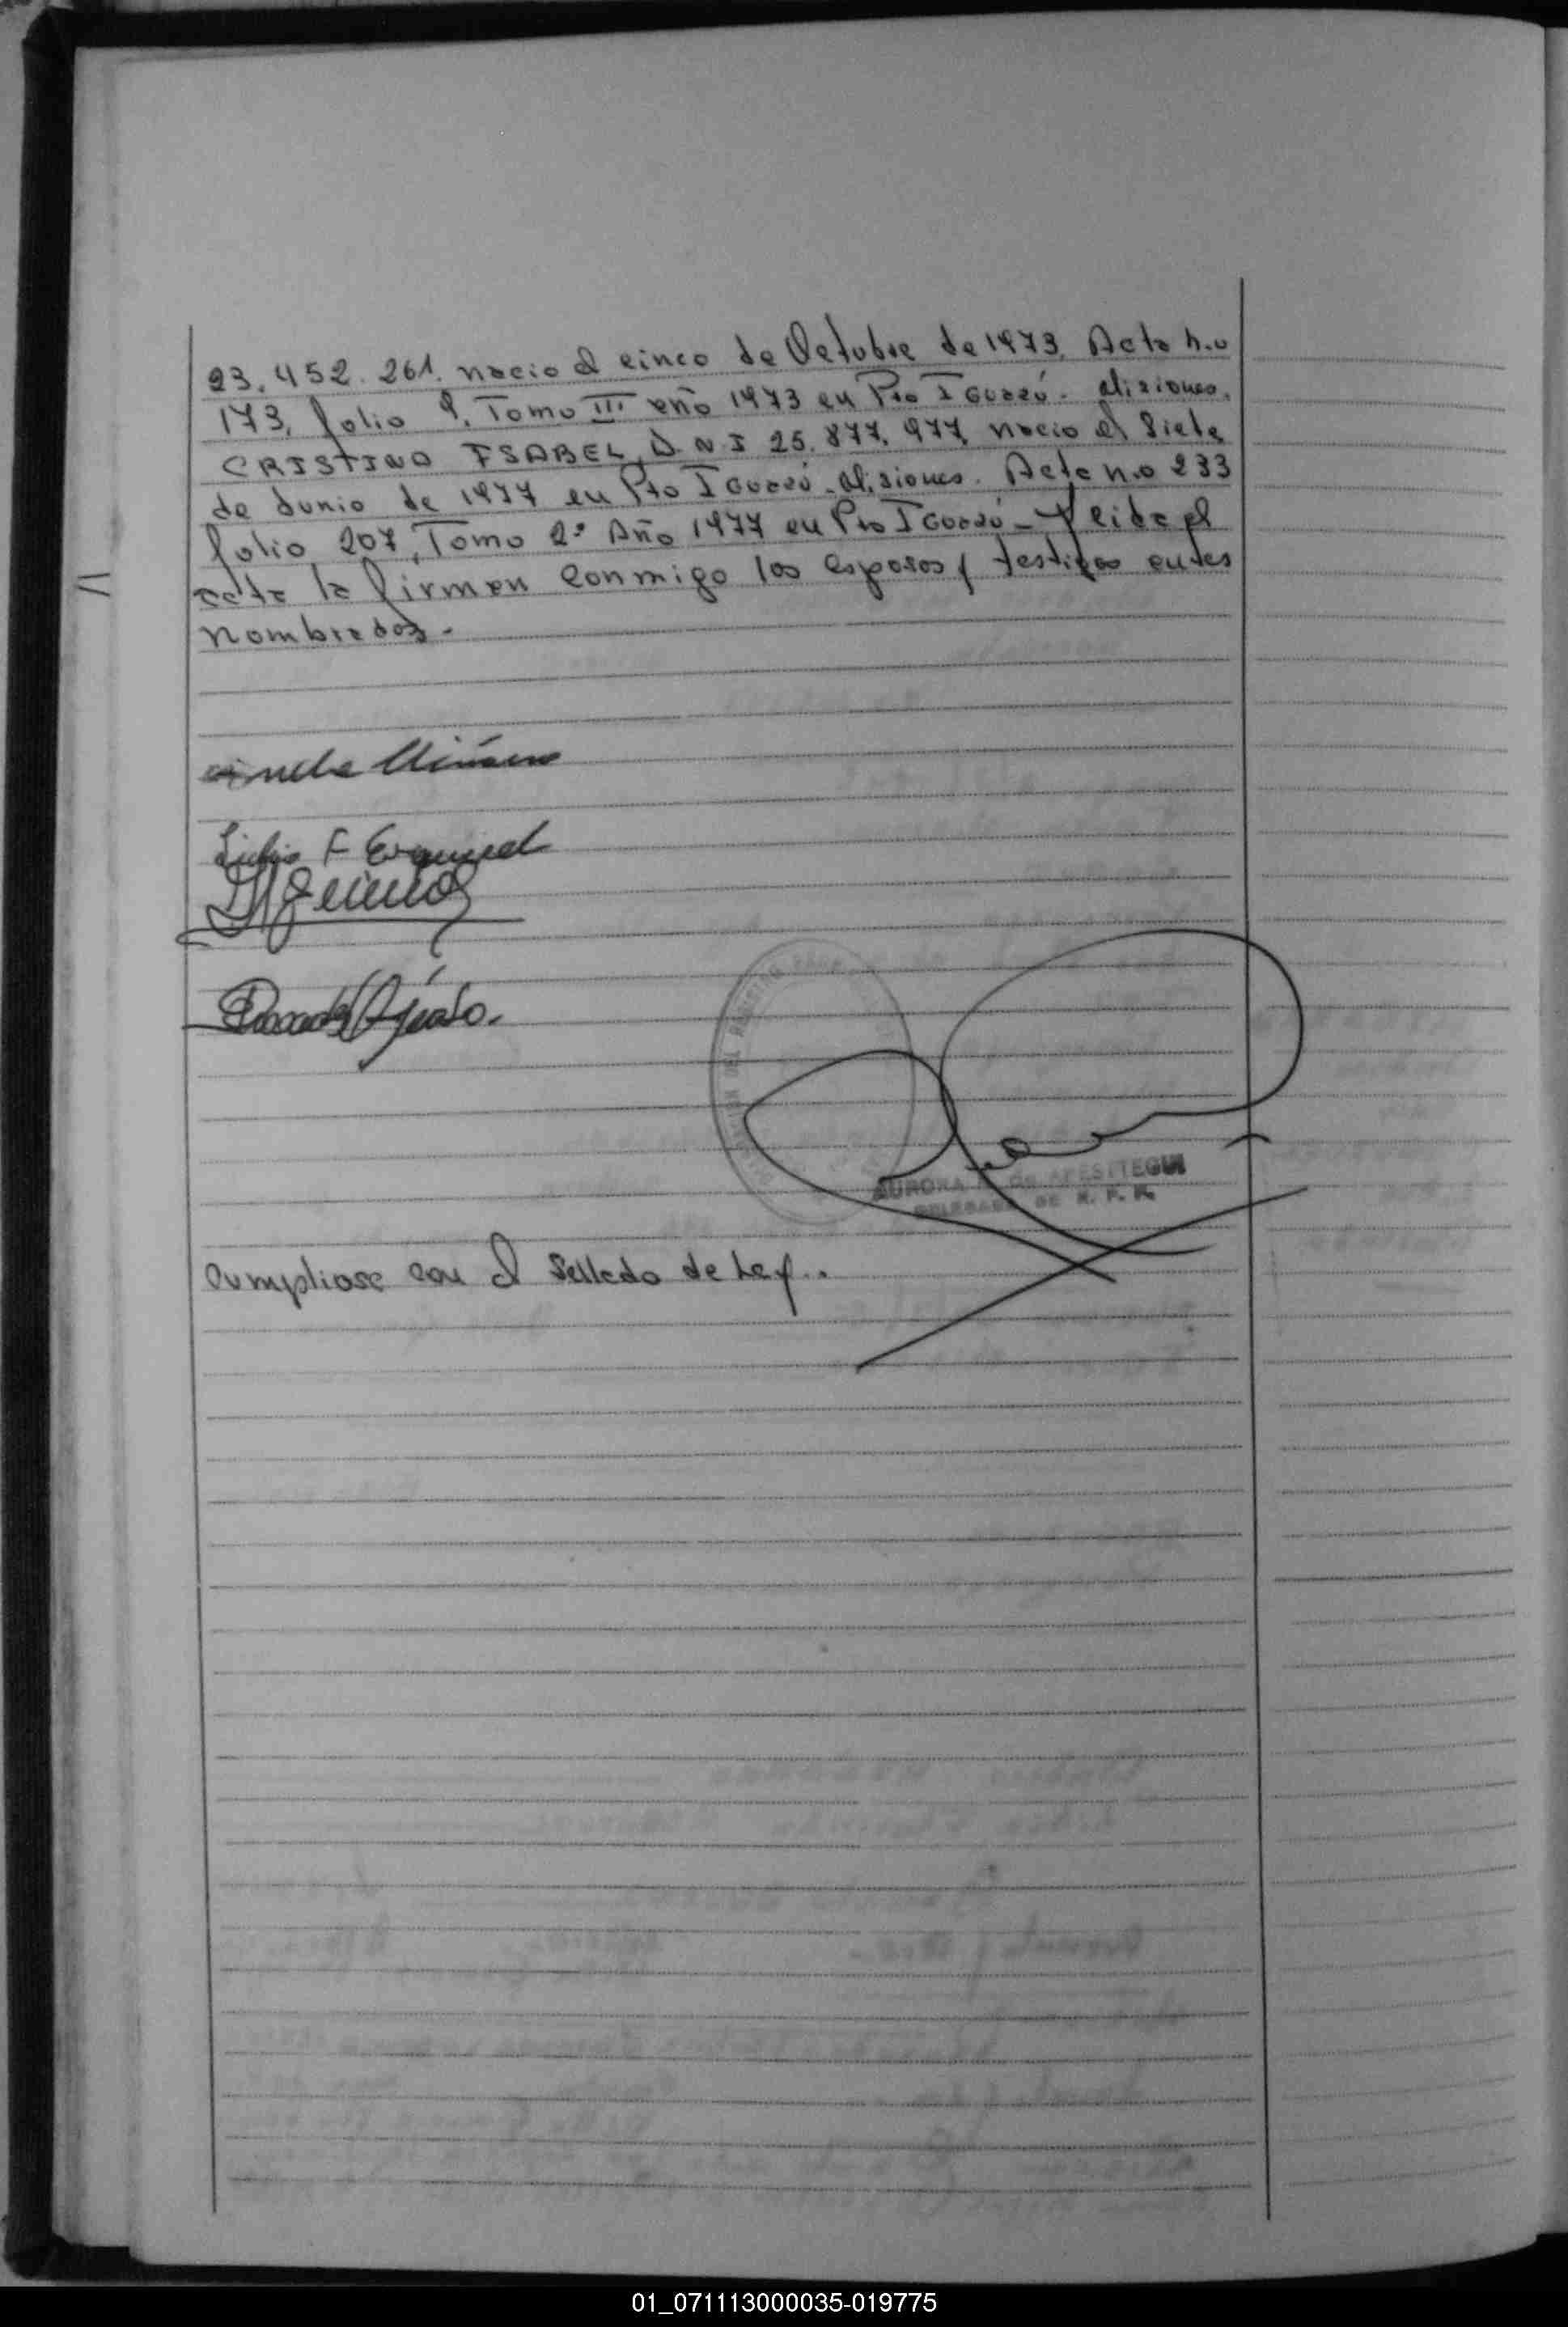 23.452.261. nacio el cinco de Octubre de 1973. Acta n.o
173, folio 9, Tomo III año 1973 en Pto Iguazú - Misiones.
CRISTINA ISABEL, D.N.I 25.877.977, nacio el Siete
de Junio de 1977 en Pto Iguazú - Misiones. Acta n.o 233
folio 207, Tomo 2º Año 1977 en Pto Iguazú - Y leida el
acta la firman conmigo los esposos y testigos antes
nombrados -
Lidia F Esquivel
DEL REGISTRO
AURORA DE APESTEGUI
DELEGADA DE R. P. P.
Cumpliose con el Sellado de Ley..
01_071113000035-019775